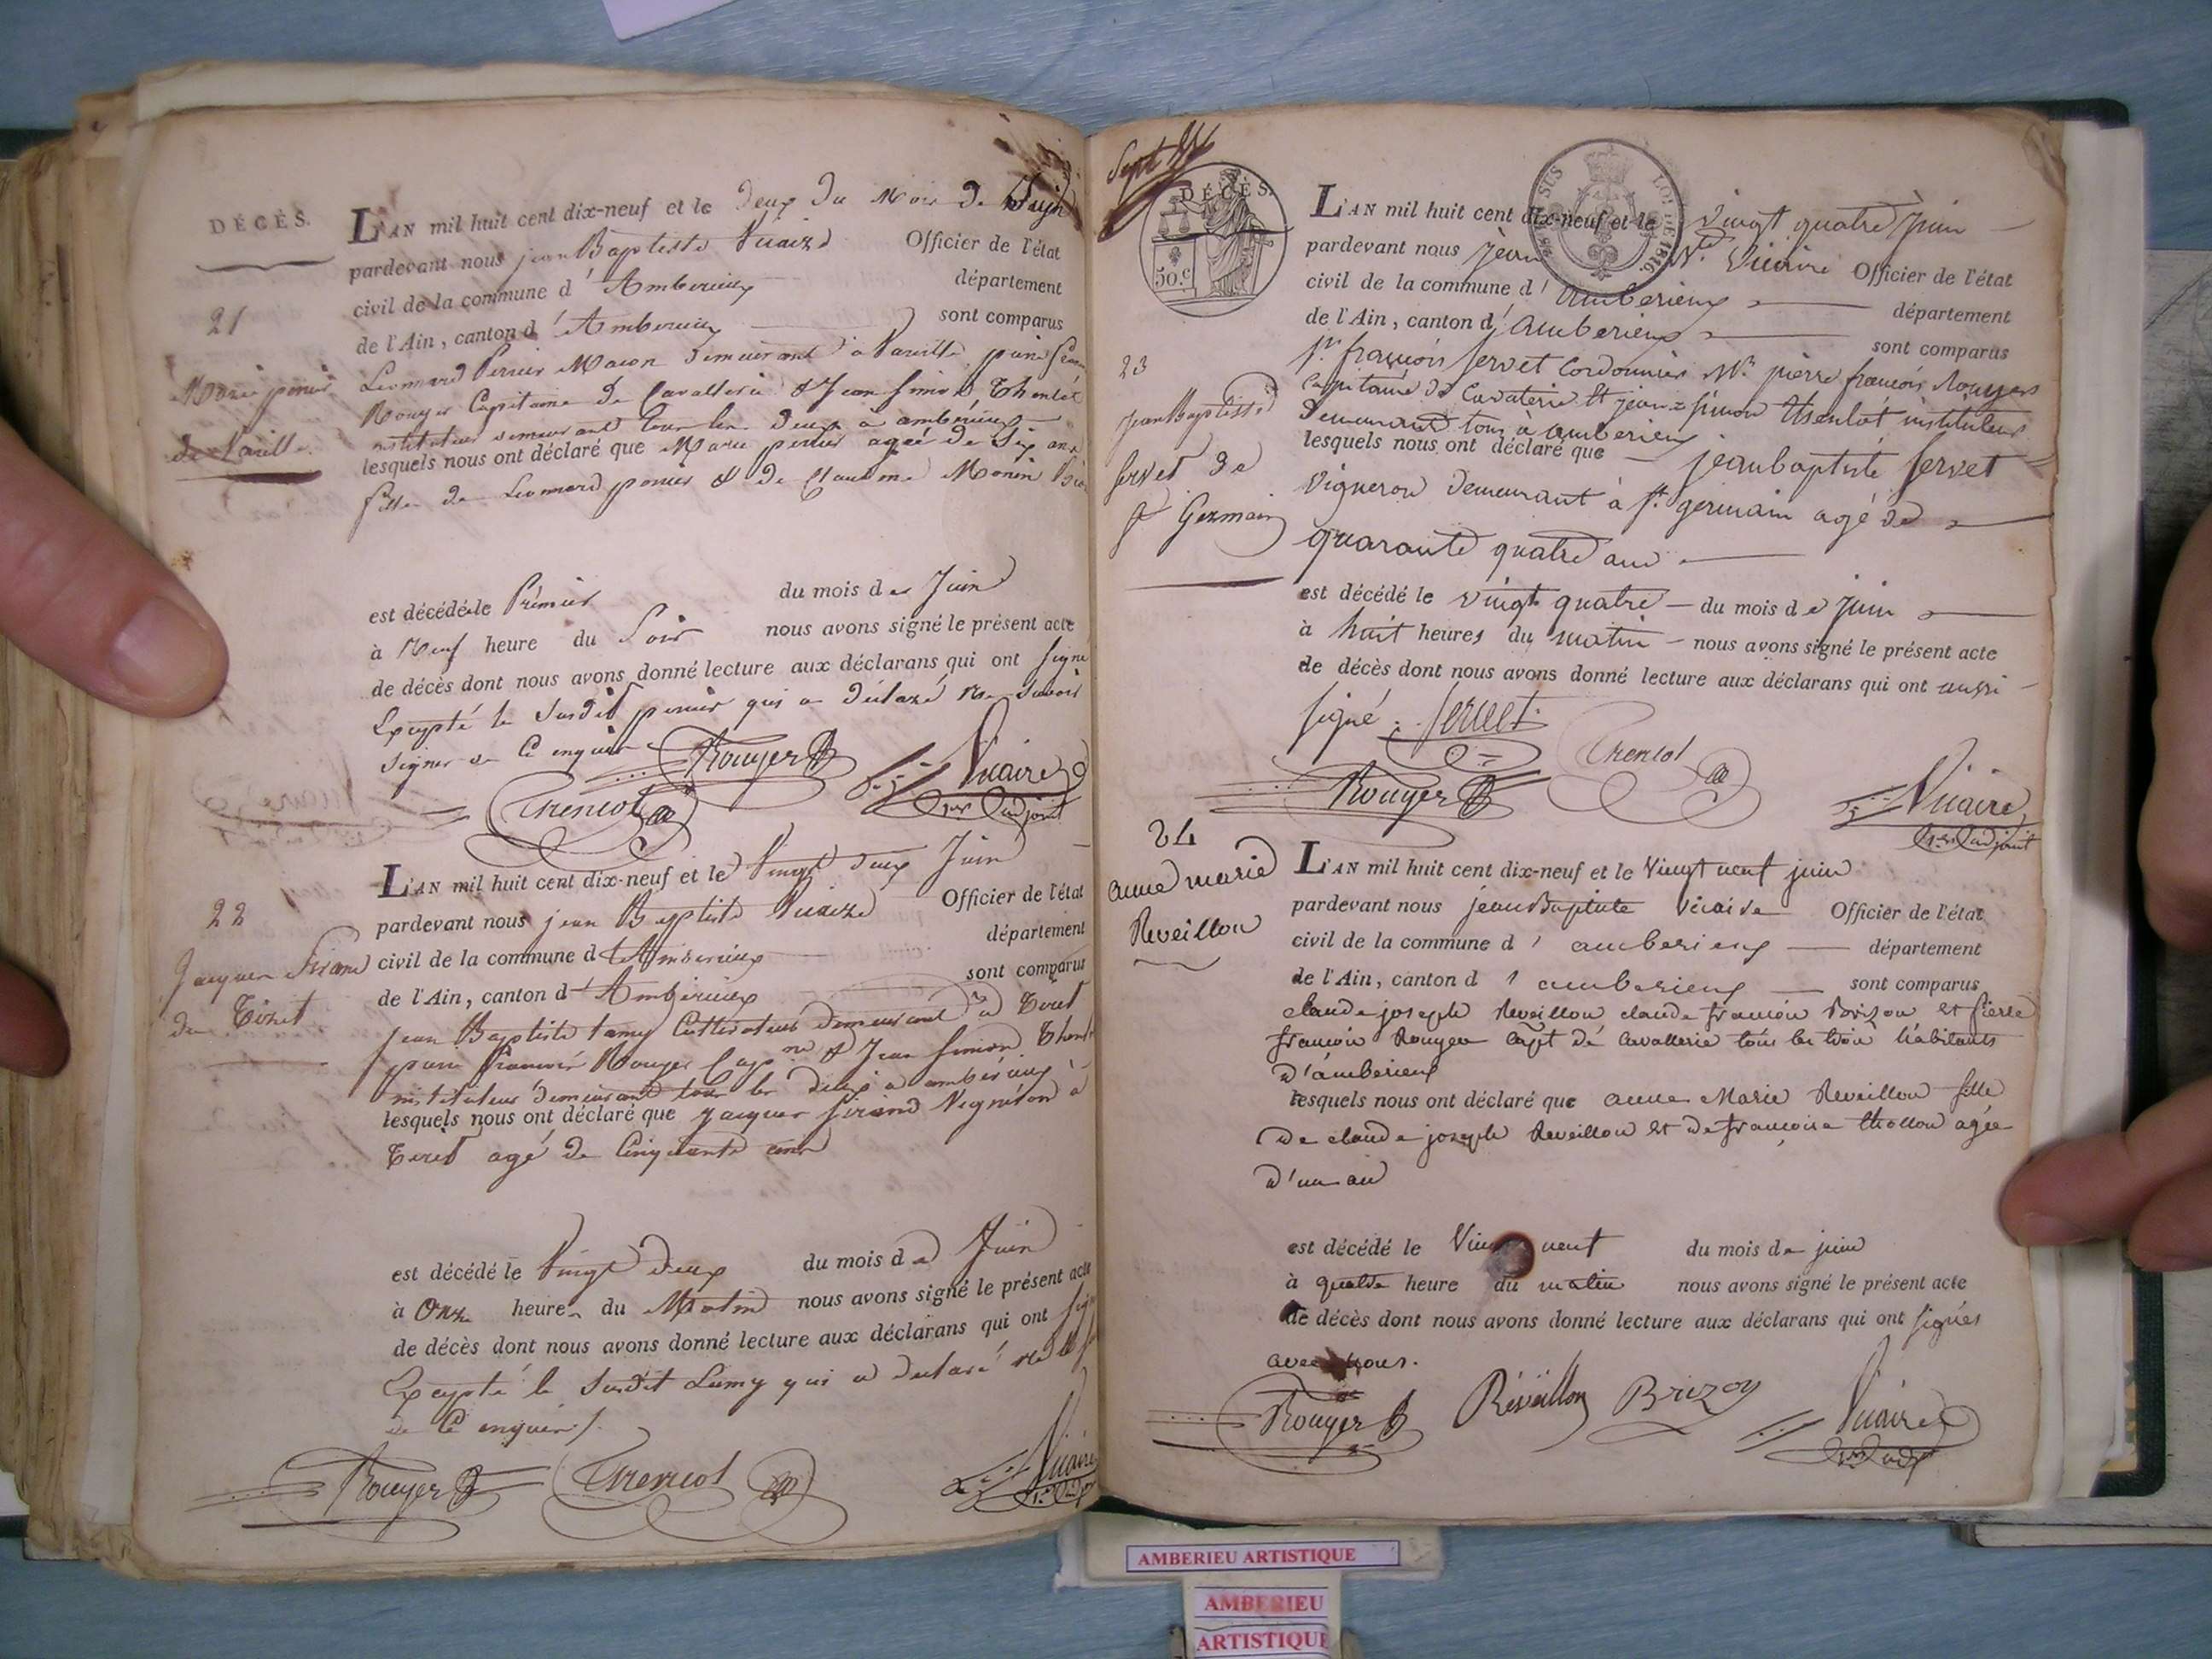 DÉCÈS.
L'AN mil huit cent dix-neuf et le deux du Mois de Juin
pardevant nous jean Baptiste Vicaire Officier de l'état
civil de la commune d'Amberieux département
de l'Ain, canton d'Amberieux sont comparus
21
Marie perrier
de Vareille
Leonnard Perrier Macon demeurant a Vareille, pierre
Rouyer Capitaine de Cavallerie & Jean Simon
instituteur demeurant tous les deux a amberieux
lesquels nous ont déclaré que Marie perrier agée de Six ans
fille de Leonnard perrier & de Claudine Monin
est décédée le Prémier du mois de Juin
à Neuf heure du Soir nous avons signé le présent acte
de décès dont nous avons donné lecture aux déclarans qui ont signé
Excepté le susdit perrier qui a déclaré ne savoir
signer de ce enquis
Rouyer Vicaire
Thenlot 1er adjoint
L'AN mil huit cent dix-neuf et le Vingt deux Juin
pardevant nous jean Baptiste Vicaire Officier de l'état
civil de la commune d'Amberieux département
de l'Ain, canton d'Amberieux sont comparus
22
Jacques Sirand
de Tiret
jean Baptiste Lamy Cultivateur demeurant a Tiret
pierre francois Rouyer Cap.ne & Jean Simon
instituteur demeurant tous les deux a amberieux
lesquels nous ont déclaré que jacques Sirand Vigneron a
Tiret agé de Cinquante ans
est décédé le Vingt deux du mois de Juin
à Onze heures du Matin nous avons signé le présent acte
de décès dont nous avons donné lecture aux déclarans qui ont
Excepté le susdit Lamy qui a declaré ne le
de ce enquis
Rouyer Thenlot Vicaire
Sept
DÉCÈS.
50.c
SUS LOI DE 1816.
L'AN mil huit cent dix-neuf et le vingt quatre juin
pardevant nous jean Vicaire Officier de l'état
civil de la commune d'amberieux département
de l'Ain, canton d'amberieux sont comparus
23
jean Baptiste
servet de
St Germain
françois servet Cordonnier Mr. pierre françois Rouyer
capitaine de Cavalerie Et jean simon thenlot instituteur
demeurant tous à amberieux
lesquels nous ont déclaré que jean baptiste servet
vigneron demeurant à st. germain agé de
quarante quatre ans
est décédé le vingt quatre du mois de juin
à huit heures du matin nous avons signé le présent acte
de décès dont nous avons donné lecture aux déclarans qui ont aussi
signé. servet
Thenlot
Rouyer Vicaire
1er adjoint
24
anne marie
Reveillon
L'AN mil huit cent dix-neuf et le Vingt neuf juin
pardevant nous jean Baptiste Vicaire Officier de l'état
civil de la commune d'amberieux département
de l'Ain, canton d'amberieux sont comparus
claude joseph Reveillon claude francois Brizon et pierre
francois Rouyer capt de cavallerie tous les trois habitants
d'amberieux
lesquels nous ont déclaré que anne Marie Reveillon fille
de claude joseph Reveillon et de francoise thollon agée
d'un an
est décédé le Vingt neuf du mois de juin
à quatre heure du matin nous avons signé le présent acte
de décès dont nous avons donné lecture aux déclarans qui ont signés
avec nous.
Rouyer Réveillon Brizon Vicaire
AMBERIEU ARTISTIQUE
AMBERIEU
ARTISTIQUE